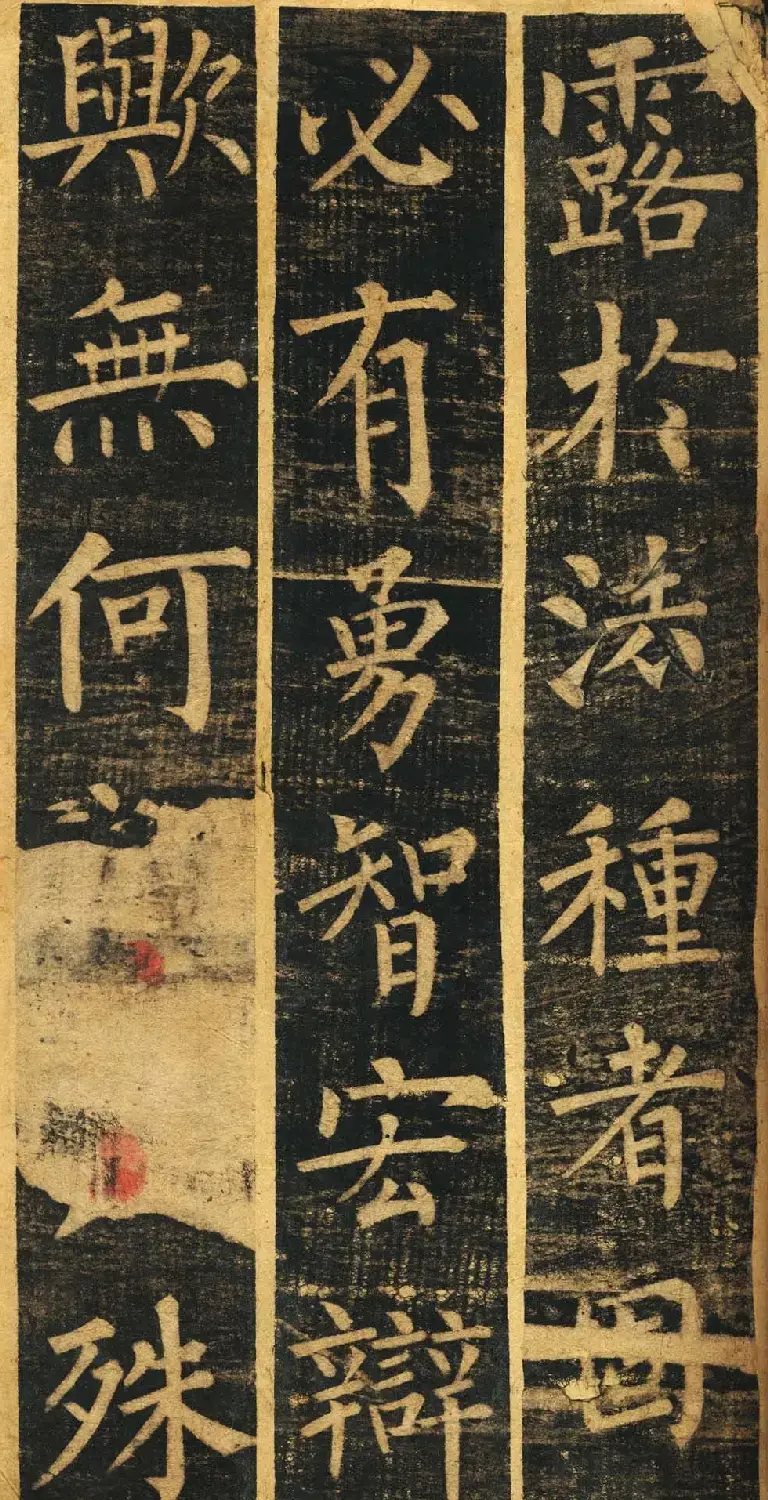 露於法種者固
必有勇智宏辯
歟無何殊